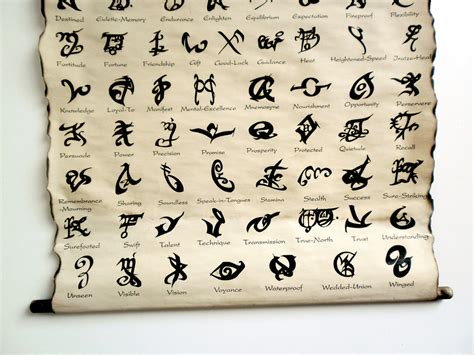 Destined Eidetic-Memory Endurance Enlighten Equilibrium Expectation Fireproof Flexibility
Fortitude Fortune Friendship Gift Good-Luck Guidance Heat Heightened-Speed
Knowledge Loyal-To Manifest Mental-Excellence Mnemosyne Nourishment Opportunity Perserverance
Persuade Power Precision Promise Prosperity Protected Quietude Recall
Remembrance
-Mourning Sharing Soundless Speak-in-Tongues Stamina Stealth Success Sure-Striking
Surefooted Swift Talent Technique Transmission True-North Trust Understanding
Unseen Visible Vision Voyance Waterproof Wedded-Union Winged